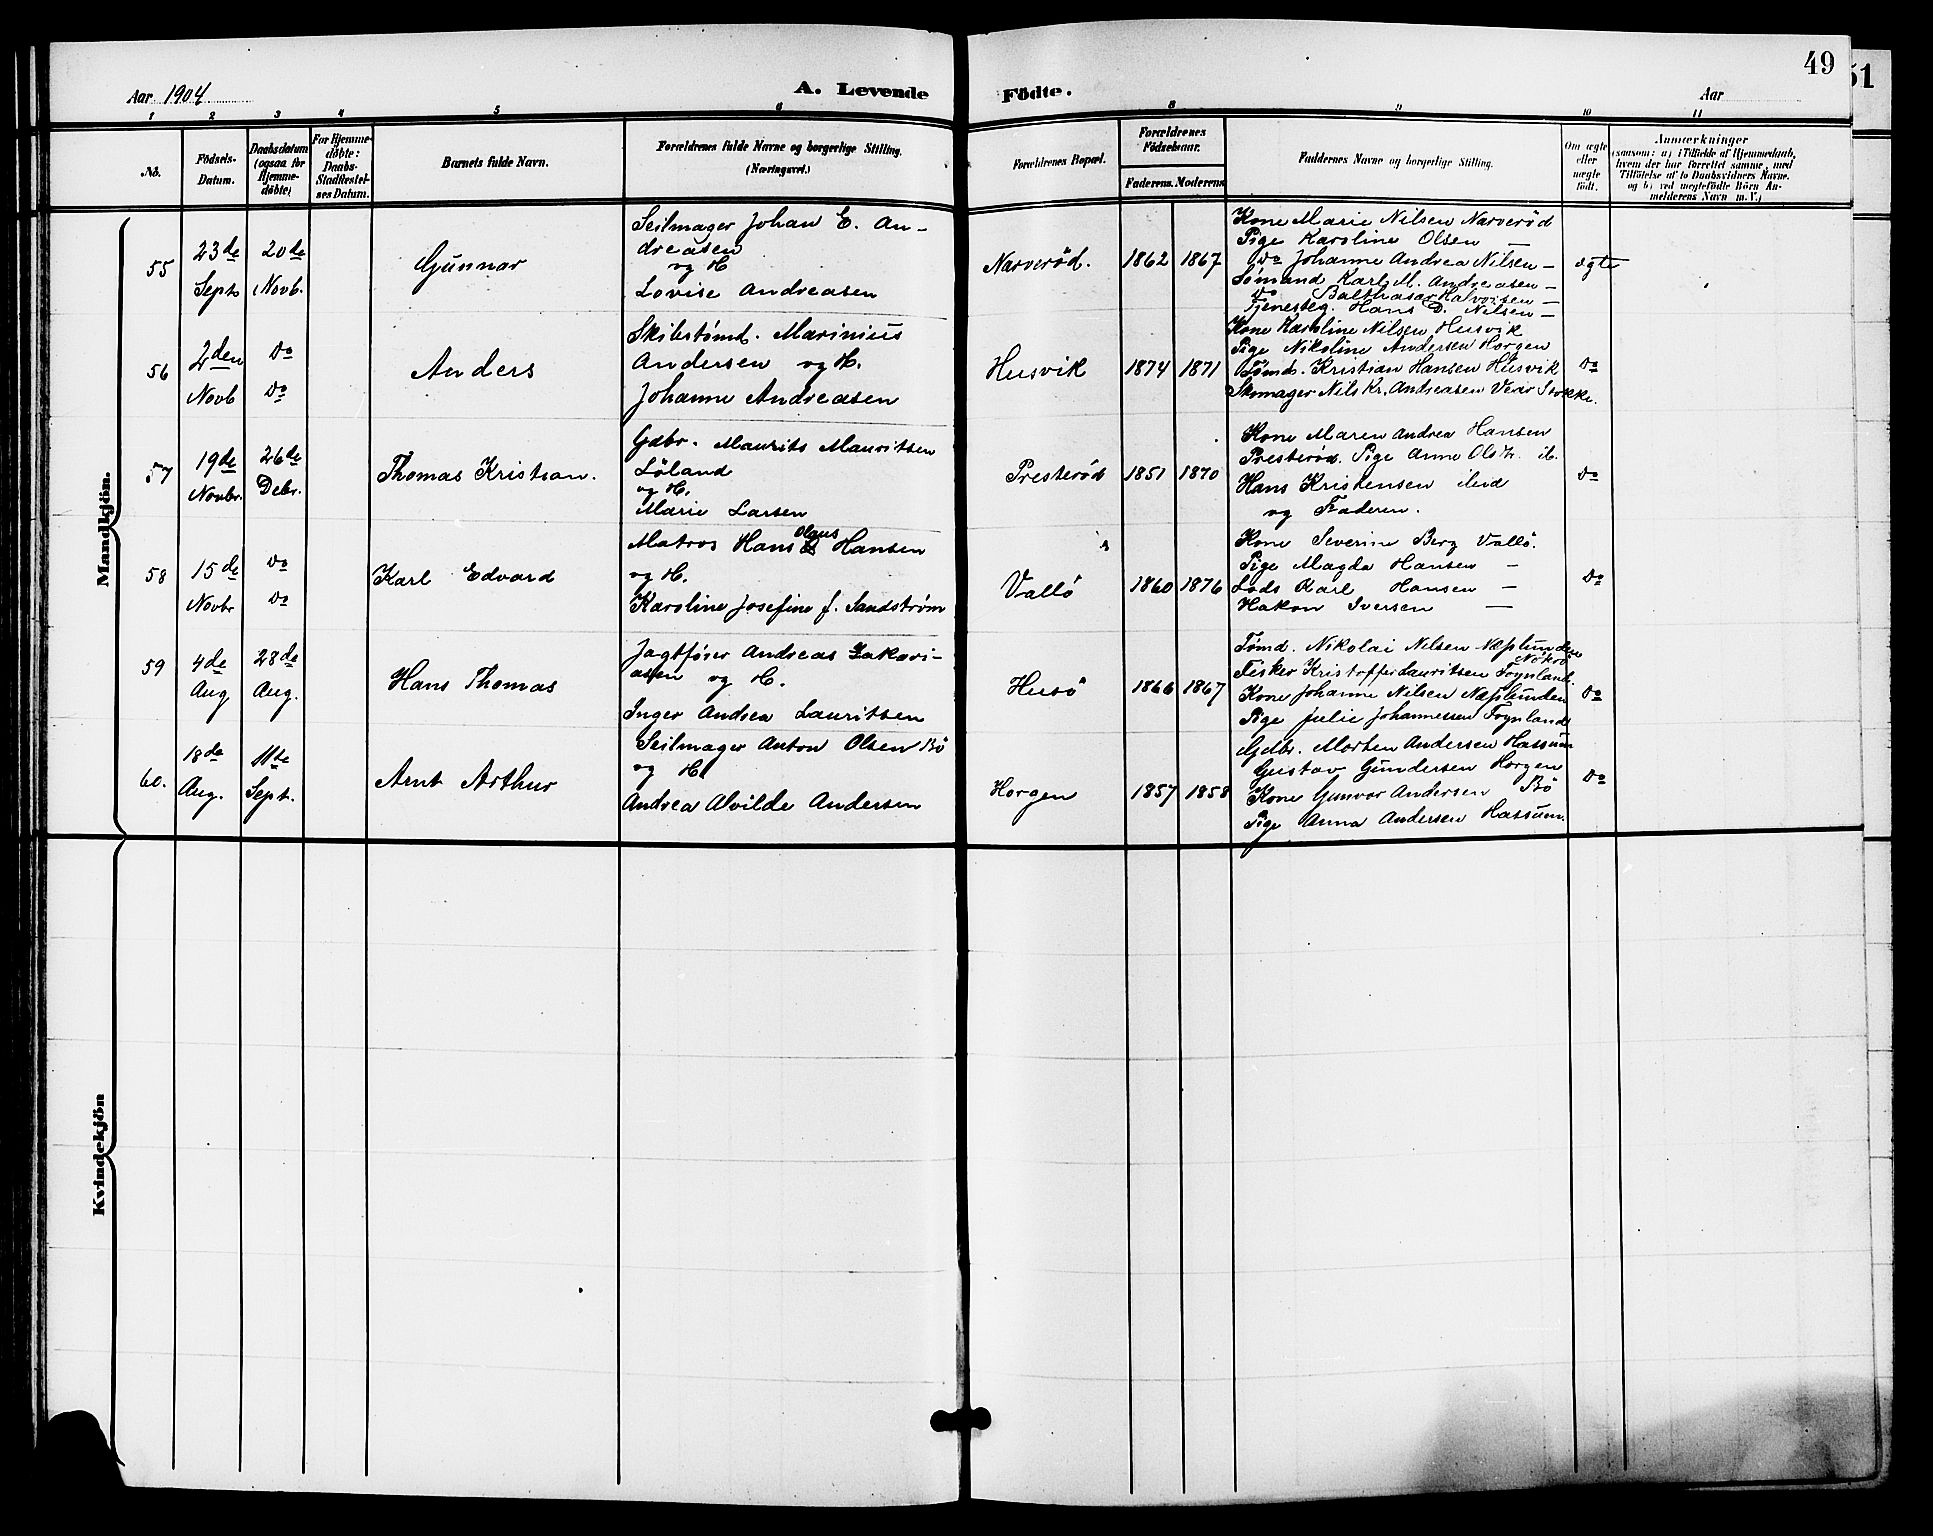 49
51
Aar 1904
A. Levende
Födte.
Aar
1 2 3 4 5 6 8 9 10 11
No.
Födsels-
Datum.
Daabsdatum
(ogsaa for
Hjemme-
döbte)
For Hjemme-
döbte:
Daabs-
Stadfæstel-
ses Datum.
Barnets fulde Navn.
Forældrenes fulde Navne og borgerlige Stilling.
(Næringsvei.)
Forældrenes Bopæl.
Forældrenes
Födselsaar.
Faderens. Moderens
Faddernes Navne og borgerlige Stilling.
Om ægte
eller
uægte
födt.
Anmærkninger
(saasom: a) i Tilfælde af Hjemmedaab,
hvem der har forrettet samme, med
Tilföielse af to Daabsvidners Navne.
og b) ved uegtefödte Börn An-
melderens Navn m. V.)
Mandkjön.
55
23de
Sept.
20de
Novb.
Gunnar
Seilmager Johan E. An-
dreasen
og H.
Lovise Andreasen
Narverød.
1862 1867
Kone Marie Nilsen Narverød
Pige Karoline Olsen —
Do Johanne Andrea Nilsen —
Sømand Karl M. Andreasen —
Do Balthasar Halvorsen —
Tjenesteg. Hans D. Nilsen —
ægte
56
2den
Novb
Do
Do
Anders
Skibstømd. Marinius
Andersen og H.
Johanne Andreasen
Husvik
1874 1871
Kone Karoline Nilsen Husvik
Pige Nikoline Andersen Horgen
Tømd. Kristian Hansen Husvik
Skomager Nils Kr. Andreasen Vear Stokke.
Do
57
19de
Novbr.
26de
Debr.
Thomas Kristian.
Gdbr. Maurits Mauritsen
Löland
og H.
Marie Larsen
Presterød
1851 1870
Kone Maren Andrea Hansen
Presterød. Pige Anne Ols. ib.
Hans Kristensen ibid
og Faderen.
Do
58
15de
Novbr
Do
Do
Karl Edvard
Matros Hans Olaus Hansen
og H.
Karoline Josefine f. Sandstrøm
Vallö
1860 1876
Kone Severine Berg Vallö.
Pige Magda Hansen —
Lods Karl Hansen —
Hakon Iversen —
Do
59
4de
Aug
28de
Aug.
Hans Thomas
Jagtfører Andreas Zakari-
asen og H.
Inger Andrea Lauritsen
Husö
1866 1867
Tømd. Nikolai Nilsen Næslunden
Nøterø
Fisker Kristoffer Lauritsen Föynland.
Kone Johanne Nilsen Næslunden
Pige Julie Johannessen Föynland
Do
60.
18de
Aug.
11te
Sept.
Arnt Arthur
Seilmager Anton Olsen Bö
og H.
Andrea Alvilde Andersen
Horgen
1857 1858
Gdbr. Morten Andersen Hassum
Gustav Gundersen Horgen
Kone Gunvor Andersen Bö
Pige Anna Andersen Hassum.
Do
Kvindekjön